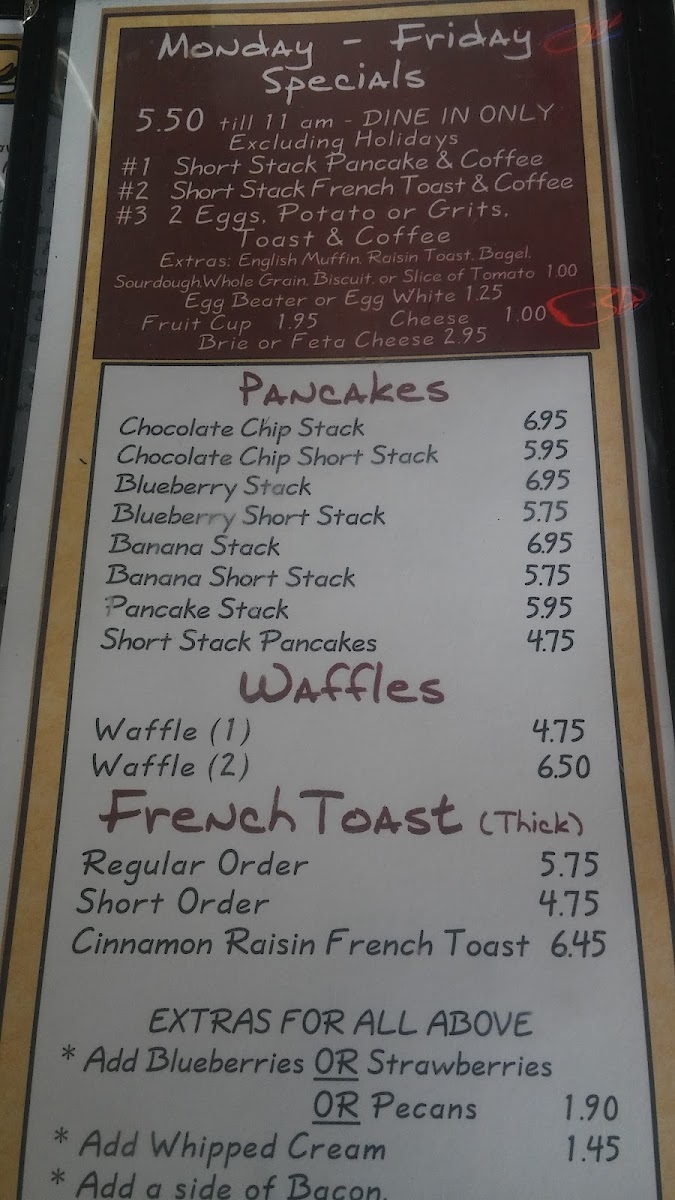 Monday - Friday
Specials
5.50 till 11 am - DINE IN ONLY
Excluding Holidays
#1 Short Stack Pancake & Coffee
#2 Short Stack French Toast & Coffee
#3 2 Eggs, Potato or Grits,
Toast & Coffee
Extras: English Muffin, Raisin Toast, Bagel,
Sourdough, Whole Grain, Biscuit, or Slice of Tomato 1.00
Egg Beater or Egg White 1.25
Fruit Cup 1.95 Cheese 1.00
Brie or Feta Cheese 2.95
Pancakes
Chocolate Chip Stack 6.95
Chocolate Chip Short Stack 5.95
Blueberry Stack 6.95
Blueberry Short Stack 5.75
Banana Stack 6.95
Banana Short Stack 5.75
Pancake Stack 5.95
Short Stack Pancakes 4.75
Waffles
Waffle (1) 4.75
Waffle (2) 6.50
French Toast (Thick)
Regular Order 5.75
Short Order 4.75
Cinnamon Raisin French Toast 6.45
EXTRAS FOR ALL ABOVE
* Add Blueberries OR Strawberries
OR Pecans 1.90
* Add Whipped Cream 1.45
* Add a side of Bacon,